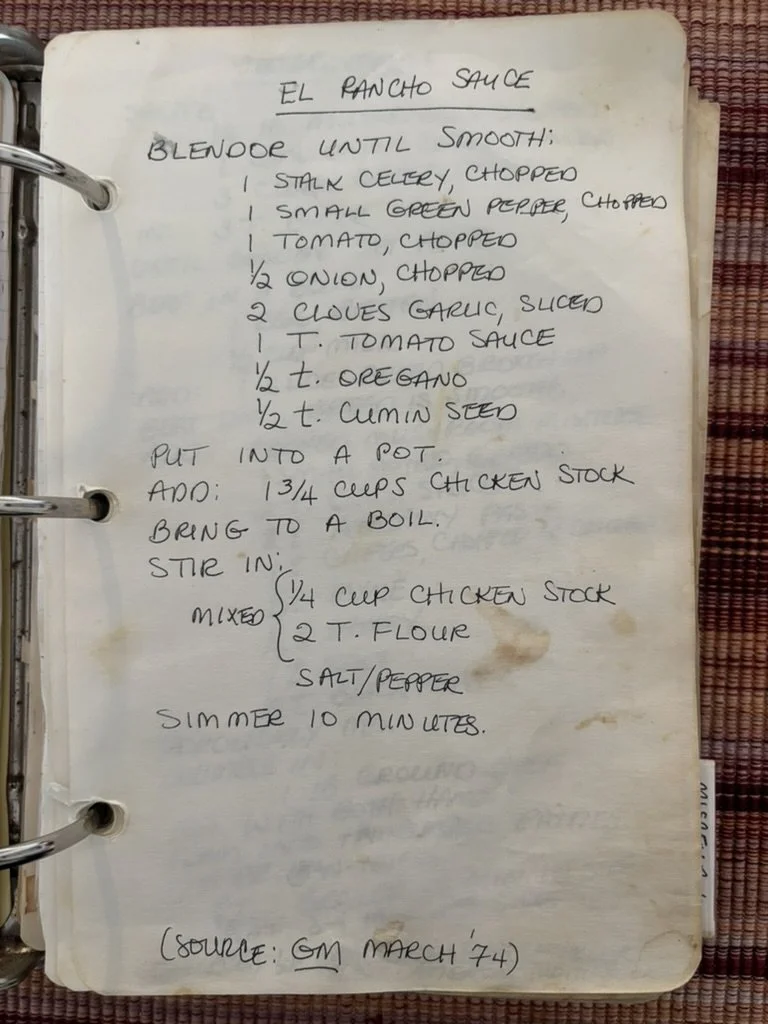 EL RANCHO SAUCE
BLENDOR UNTIL SMOOTH:
1 STALK CELERY, CHOPPED
1 SMALL GREEN PEPPER, CHOPPED
1 TOMATO, CHOPPED
½ ONION, CHOPPED
2 CLOVES GARLIC, SLICED
1 T. TOMATO SAUCE
½ t. OREGANO
½ t. CUMIN SEED
PUT INTO A POT.
ADD: 1 3/4 CUPS CHICKEN STOCK
BRING TO A BOIL.
STIR IN:
MIXED { 1/4 CUP CHICKEN STOCK
2 T. FLOUR
SALT/PEPPER
SIMMER 10 MINUTES.
(SOURCE: GM MARCH '74)